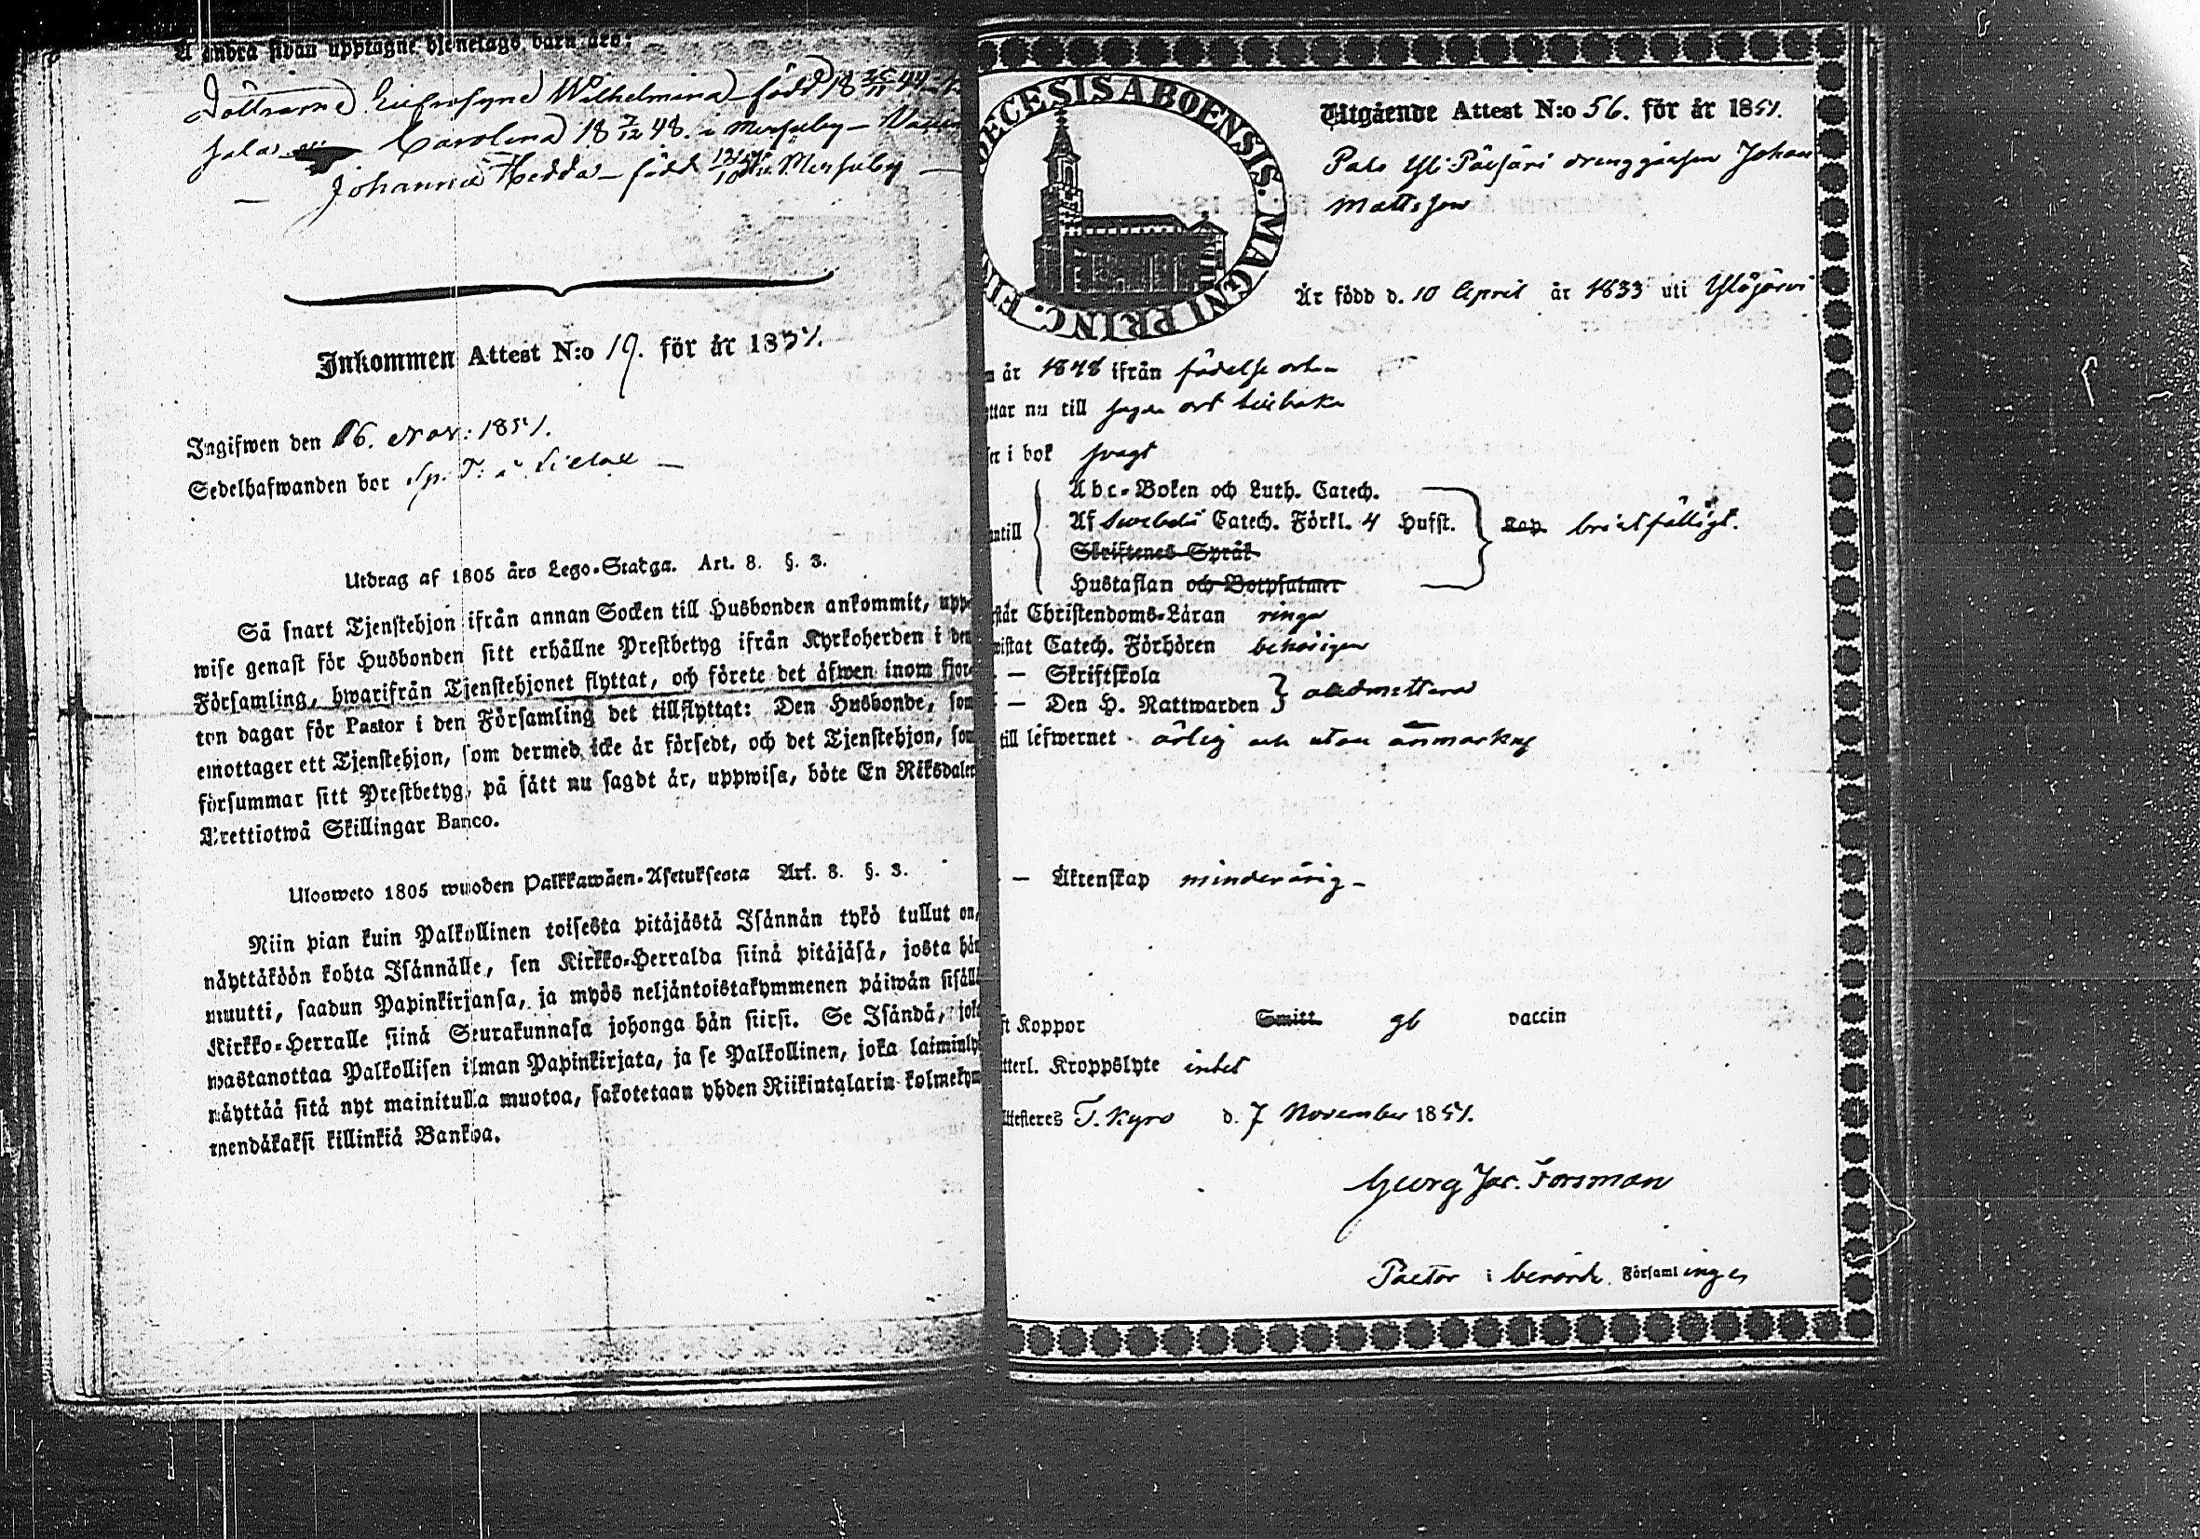 Å andra sidan upptagne hjonelags barn äro:
Döttrarne Eufrosyne Wilhelmina född 18 25/11 44
Carolina 18 7/12 48. i Mersuby —
Johanna Hedda — född i Mersuby —
Inkommen Attest N:o 19. för år 1851.
Ingifwen den 16. Nov: 1851.
Sedelhafwanden bor Sp. T: å
Utdrag af 1805 års Lego-Stadga. Art. 8. §. 3.
Så snart Tjenstehjon ifrån annan Socken till Husbonden ankommit, upp-
wise genast för Husbonden sitt erhållne Prestbetyg ifrån Kyrkoherden i den
Församling, hwarifrån Tjenstehjonet flyttat, och förete det äfwen inom fjor-
ton dagar för Pastor i den Församling det tillflyttat: Den Husbonde, som
emottager ett Tjenstehjon, som dermed icke är försedt, och det Tjenstehjon, som
försummar sitt Prestbetyg, på sätt nu sagdt är, uppwisa, böte En Riksdaler
Trettiotwå Skillingar Banco.
Ulosweto 1805 wuoden Palkkawäen-Asetuksesta Art. 8. §. 3.
Niin pian kuin Palkollinen toisesta pitäjästä Isännän tykö tullut on,
näyttäköön kohta Isännälle, sen Kirkko-Herralda siinä pitäjäsä, josta hän
muutti, saadun Papinkirjansa, ja myös neljäntoistakymmenen päiwän sisäll
Kirkko-Herralle siinä Seurakunnasa johonga hän siirsi. Se Isändä, joka
wastanottaa Palkollisen ilman Papinkirjata, ja se Palkollinen, joka laiminly
näyttää sitä nyt mainitulla muotoa, sakotetaan yhden Riikintalarin kolmekym
mendäkaksi killinkiä Bankoa.
DECESIS ABOENSIS. MAGNI PRINC. FIN
Utgående Attest N:o 56. för år 1851.
Palo Yli Pässäri drenggåssen Johan
Mattsson
Är född d. 10 April år 1833 uti Ylöjärvi
n år 1848 ifrån födelse orten
ttar nu till sagde ort tillbaka
er i bok svagt
Abc-Boken och Luth. Catech.
ntill
Af Svebelii Catech. Förkl. 4 Hufst.
bristfälligt.
Skriftenes Språk
Hustaflan och Botpsalmer
står Christendoms-Läran ringa
wistat Catech. Förhören behörigen
— Skriftskola
— Den H. Nattwarden } admitterad
till lefwernet ärlig och utan anmärkng
— Äktenskap minderårig —
ft Koppor Smitt. gb vaccin
tterl. Kroppslyte intet
ttesteres T. Kyro d. 7 November 1851.
Georg Jac. Forsman
Pastor i berörde Församlingen